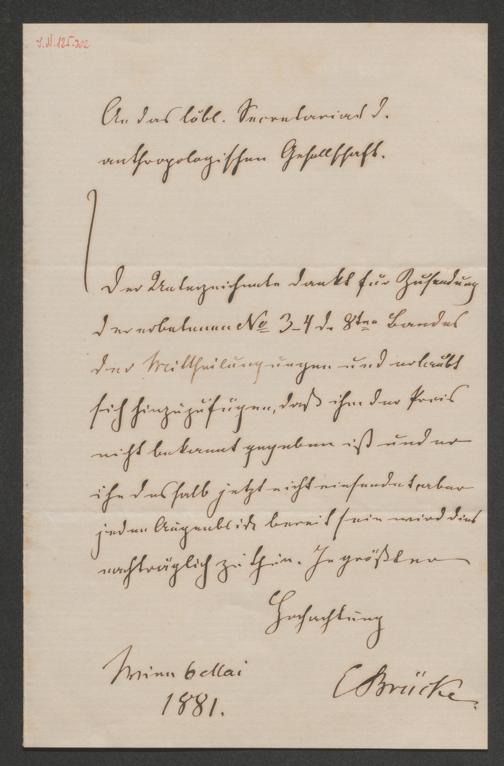 I.N. 125.302
An das löbl. Secretariat d.
anthropologischen Gesellschaft.
Der Unterzeichnete dankt für Zusendung
der erbetenen No 3_4 d. 8ten Bandes
der Mittheilungungen und erlaubt
sich hinzuzufügen, daß ihm der Preis
nicht bekannt gegeben ist und er
ihn deshalb jetzt nicht einsendet, aber
jeden Augenblick bereit sein wird dies
nachträglich zu thun. In größter
Hochachtung
Wien 6 Mai
1881.
E Brücke.